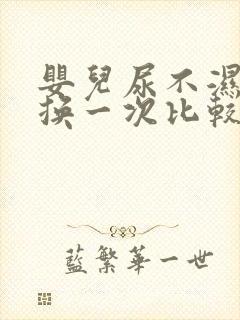 嬰兒尿不濕
換一次比較
藍繁華一世